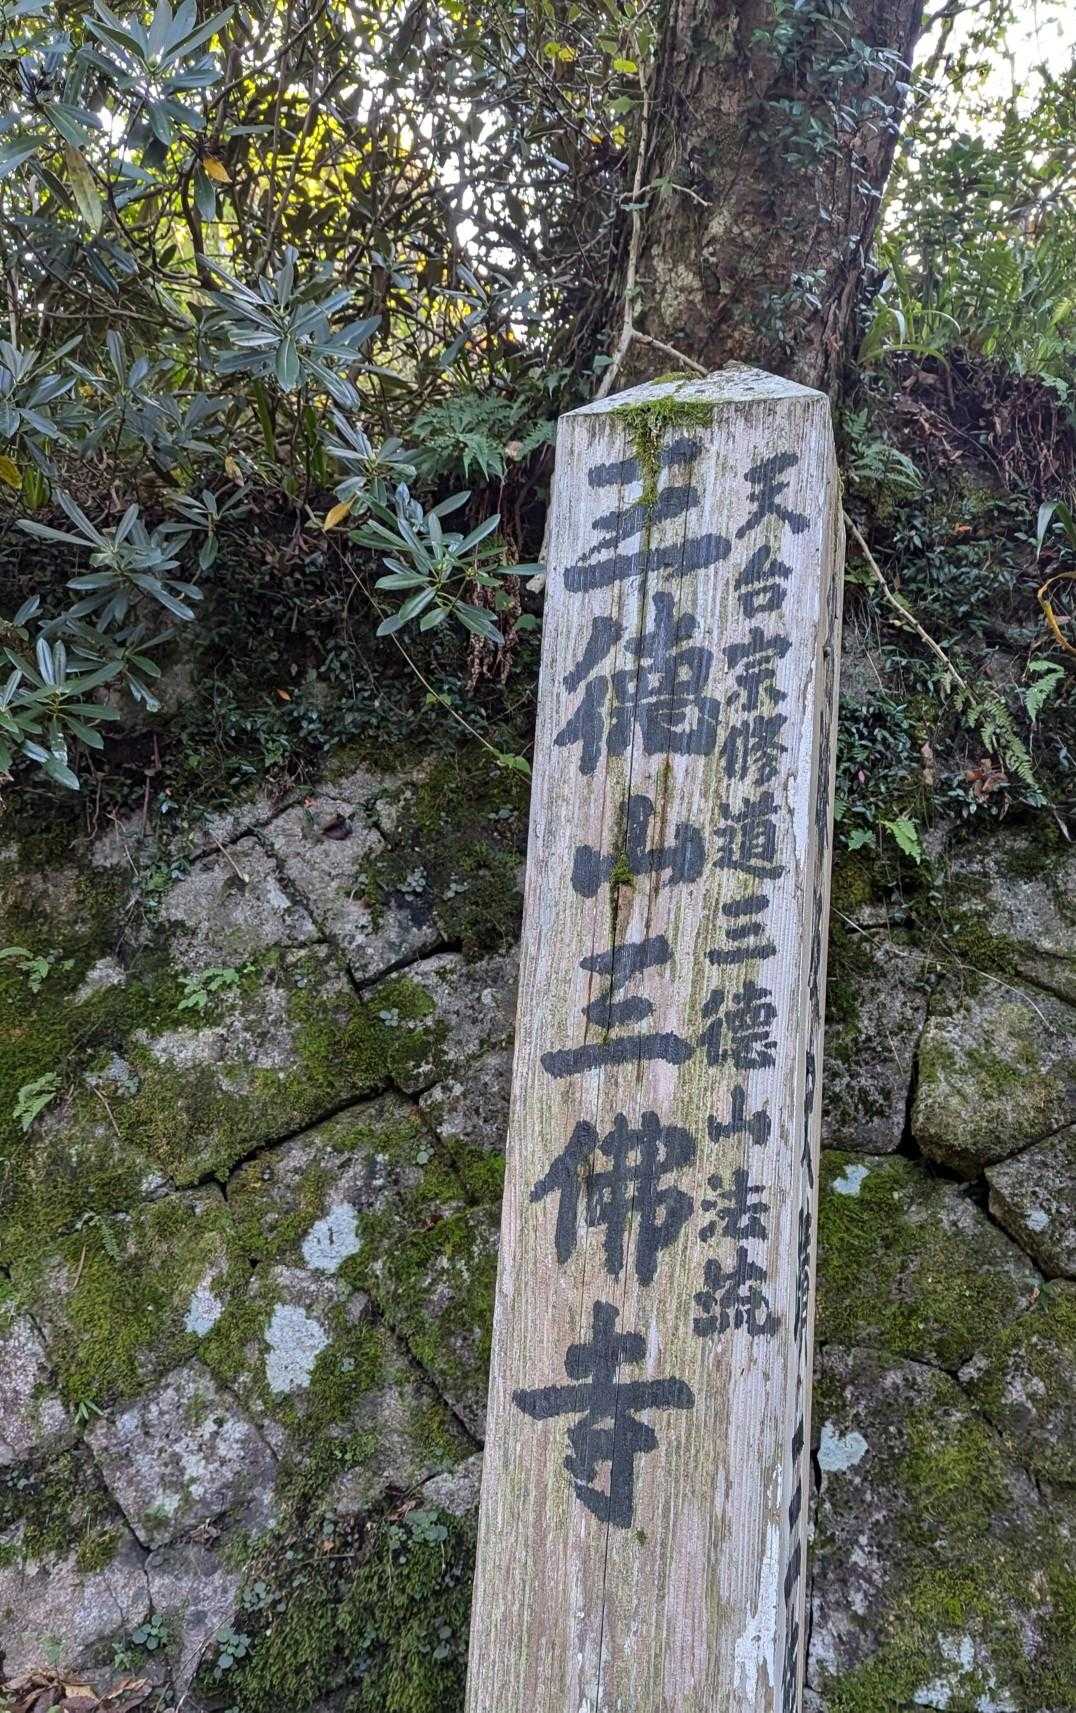 天台宗修道三徳山法流
三徳山三佛寺